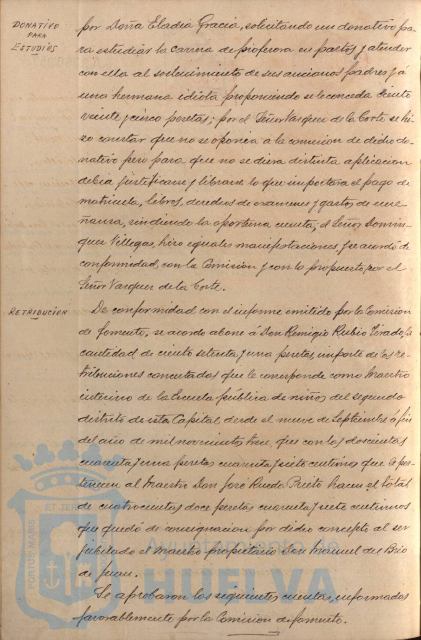 DONATIVO
PARA
ESTUDIOS
por Doña Eladia Gracia, solicitando un donativo pa
ra estudiar la carrera de profesora en partos y atender
con ella al sostenimiento de sus ancianos padres y á
una hermana idiota proponiendo se le conceda ciento
veinte y cinco pesetas; por el Señor Vazquez de la Corte se hi
zo constar que no se oponia a la concesion de dicho do-
nativo pero para que no se diera distinta aplicacion
debia justificarse y librarse lo que importara el pago de
matricula, libros, derechos de examenes y gastos de ense
ñanza, rindiendo la oportuna cuenta; el Señor Domin-
guez Villegas, hizo iguales manifestaciones, y se acordó de
conformidad, con la Comision y con lo propuesto por el
Señor Vazquez de la Corte.
RETRIBUCION
De conformidad con el informe emitido por la Comision
de fomento, se acordo abone á Don Remigio Rubio Tirado, la
cantidad de ciento setenta y una pesetas, importe de las re-
tribuciones concertadas que le corresponde como Maestro
interino de la Escuela pública de niños del segundo
distrito de esta Capital, desde el nueve de Septiembre á fin
del año de mil novecientos trece, que con los doscientas
cuarenta y una pesetas cuarenta y siete centimos que le per-
tenecen al Maestro Don José Rueda Prieto hacen el total
de cuatrocientas doce pesetas cuarenta y siete centimos
que quedó de consignacion por dicho concepto al ser
jubilado el Maestro propietario Don Manuel del Brio
de Juan.
Se aprobaron las siguientes cuentas, informadas
favorablemente por la Comision de fomento.
PORTUS MARIS
ET TER
Ayuntamiento de
HUELVA